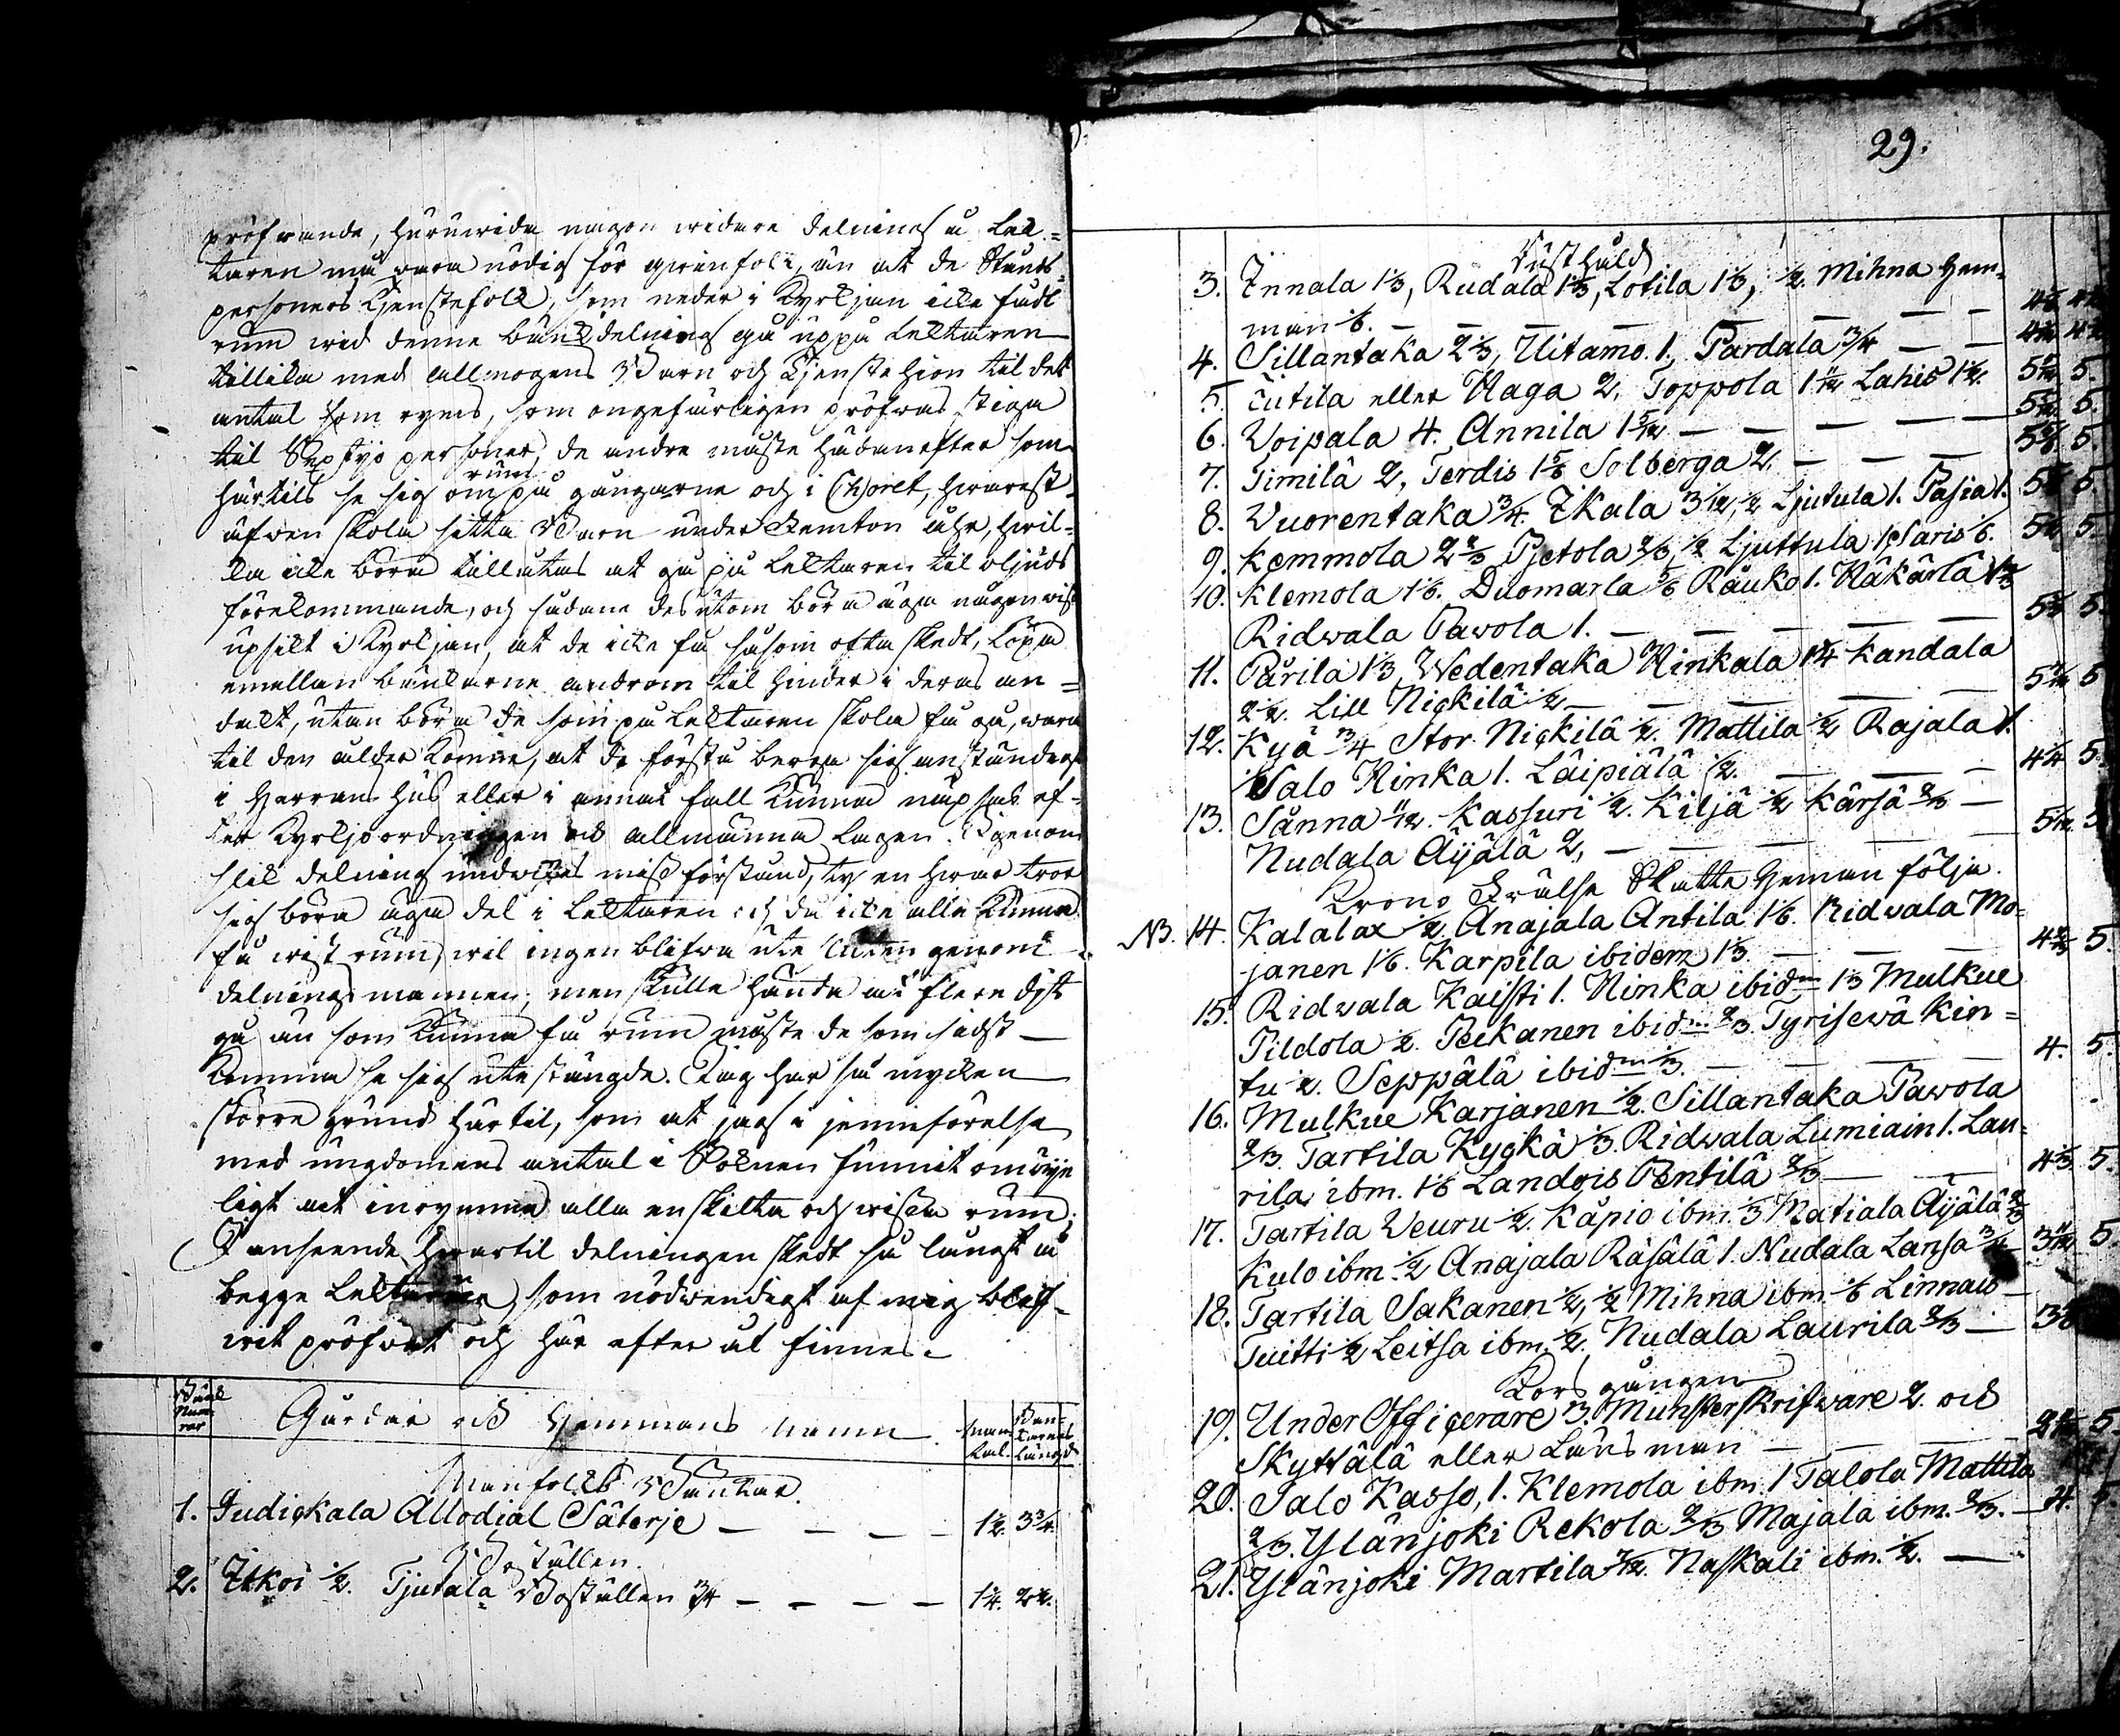 pröfwande, huruwida någon widare delning å Lek-
taren må wara nödig för qwinfolk, än at de Stånds
personers Tjenstefolk, som neder i Kyrkjan icke fådt
rum wid denne bänkdelning gå uppå Lektaren
tillika med allmogens Barn och Tjenstehion til det
antal som rymes, som ongefärligen pröfwas stiga
til personer, de andre måste hädanefter som
härtils se sig om rum på gångarne och i Choret, hwarest
äfwen skola sitta Barn under femton åhr, hwil-
ka icke böra tillåtas at gå på Lektaren til oljuds
förekommande, och sådane desutom böra äga någon wiss
upsikt i Kyrkjan, at de icke få såsom ofta skedt, löpa
emellan bänkarne androm til hinder i deras an-
dakt, utan böra de som på Lektaren skola få gå, wara
til den ålder komne, at de förstå bära sig anständigt
i Herrans Hus eller i annat fall kunna näpsas ef-
ter Kyrkjoordningen och allmänna Lagen. Igenom
slik delning undwikes missförstånd, ty en hwar tror
sig böra äga del i Lektaren och då icke alla kunna
få wist rum, wil ingen blifwa ute luten genom
delningsmannen, men skulle hända at flere dijt
gå än som kunna få rum måste de som sidst
komma se sig utestängde. Jag har så mycken
större grund härtil, som at jag i jemnförelse
med ungdomens antal i Soknen funnit omöije
ligt at inrymma alla enskilta och wissa rum.
I anseende hwartil delningen skedt så långt å
begge Lektarena, som nödwendigt af mig blif-
wit pröfwat och här efter at finnes.
Bänk Num-rar Gårdar och Hemmans namn. Man-tal. Bänkarnes Längd
Manfolks Bänkar.
1. Judickala Allodial Säterje — — — — 1½. 3¾.
Boställen.
2. Itkoi ½. Tjutala Boställen ¾ — — — — 1¼. 2½.
29.
Rusthåld
3. Innala 1⅓, Rudala 1⅓, Lotila 1⅓, ½ Mihna Hem-
man ⅙. — — — — — — —
4. Sillantaka 2⅓, Uitamo. 1., Pardala ¾ — —
5. Tutila eller Haga 2, Toppola Lahis 1½. 5.
6. Woipala 4. Annila — — — — — 5.
7. Jimilä 2, Terdis 1⅚ Solberga 2, — — — 5.
8. Wuorentaka ¾. Ikala ½ Ljutula 1. Pasia 1. 5.
9. Kemmola 2⅔ Pjetola ⅔, ½ Ljuttula 1, Saris ⅙. 5.
10. Klemola 1⅙. Duomarla ⅚ Räuko 1. Häkärlä 1⅓
Ridwala Pawola 1. — — — — — 5.
11. Pärila 1⅓ Wedentaka Hinkala 1¾ Kandala
2½. Lill Nickilä ½ — — — — — 5
12. Kyä ¾ Stor Nickilä ½. Mattila ½ Rajala 1.
Salo Hinka 1. Läipiälä ½. — — — 4¼ 5.
13. Sänna Kassuri ½. Kiljä ½ Kärsä ⅔ —
Nudala Äijälä 2, — — — — — 5
Krono Frälse Skatte Heman följa.
NB. 14. Kalalax ½. Anajala Antila 1⅙. Ridwala Mo-
janen 1⅙. Karpila ibidem 1⅓. — — — 4⅔ 5.
15. Ridwala Kaisti 1. Hinka ibidm 1⅓ Mulkue
Pildola ½. Pekanen ibidm ⅔ Tyrisewä Kin-
tu ½. Seppälä ibidm ⅓. — — — — 4. 5.
16. Mulkue Karjanen ½. Sillantaka Pawola
⅔. Tartila Kyckä ⅓. Ridwala Lumiain 1. Lau-
rila ibm. 1⅙ Landois Pentilä ⅔ — — 4⅓ 5.
17. Tartila Weuru ½. Käpio ibm. ⅓ Matiala Äijälä ⅔
Kulo ibm. ½ Anajala Räsälä 1. Nudala Lansa ¾ 5.
18. Tartila Sakanen ½, ½ Mihna ibm. ⅙ Linnais —
Tuitti ½ Leitsa ibm. ½. Nudala Laurila ⅔ —
Kors gången
19. Under Officerare 3. Munsterskrifware 2. och
Skyttälä eller Länsman — — — — 5.
20. Salo Kasso, 1. Klemola ibm. 1 Talola Mattila
⅔. Ylänjoki Rekola ⅔ Majala ibm. ⅔. — 4. 5.
21. Ylänjoki Martila Naskali ibm. ½. —